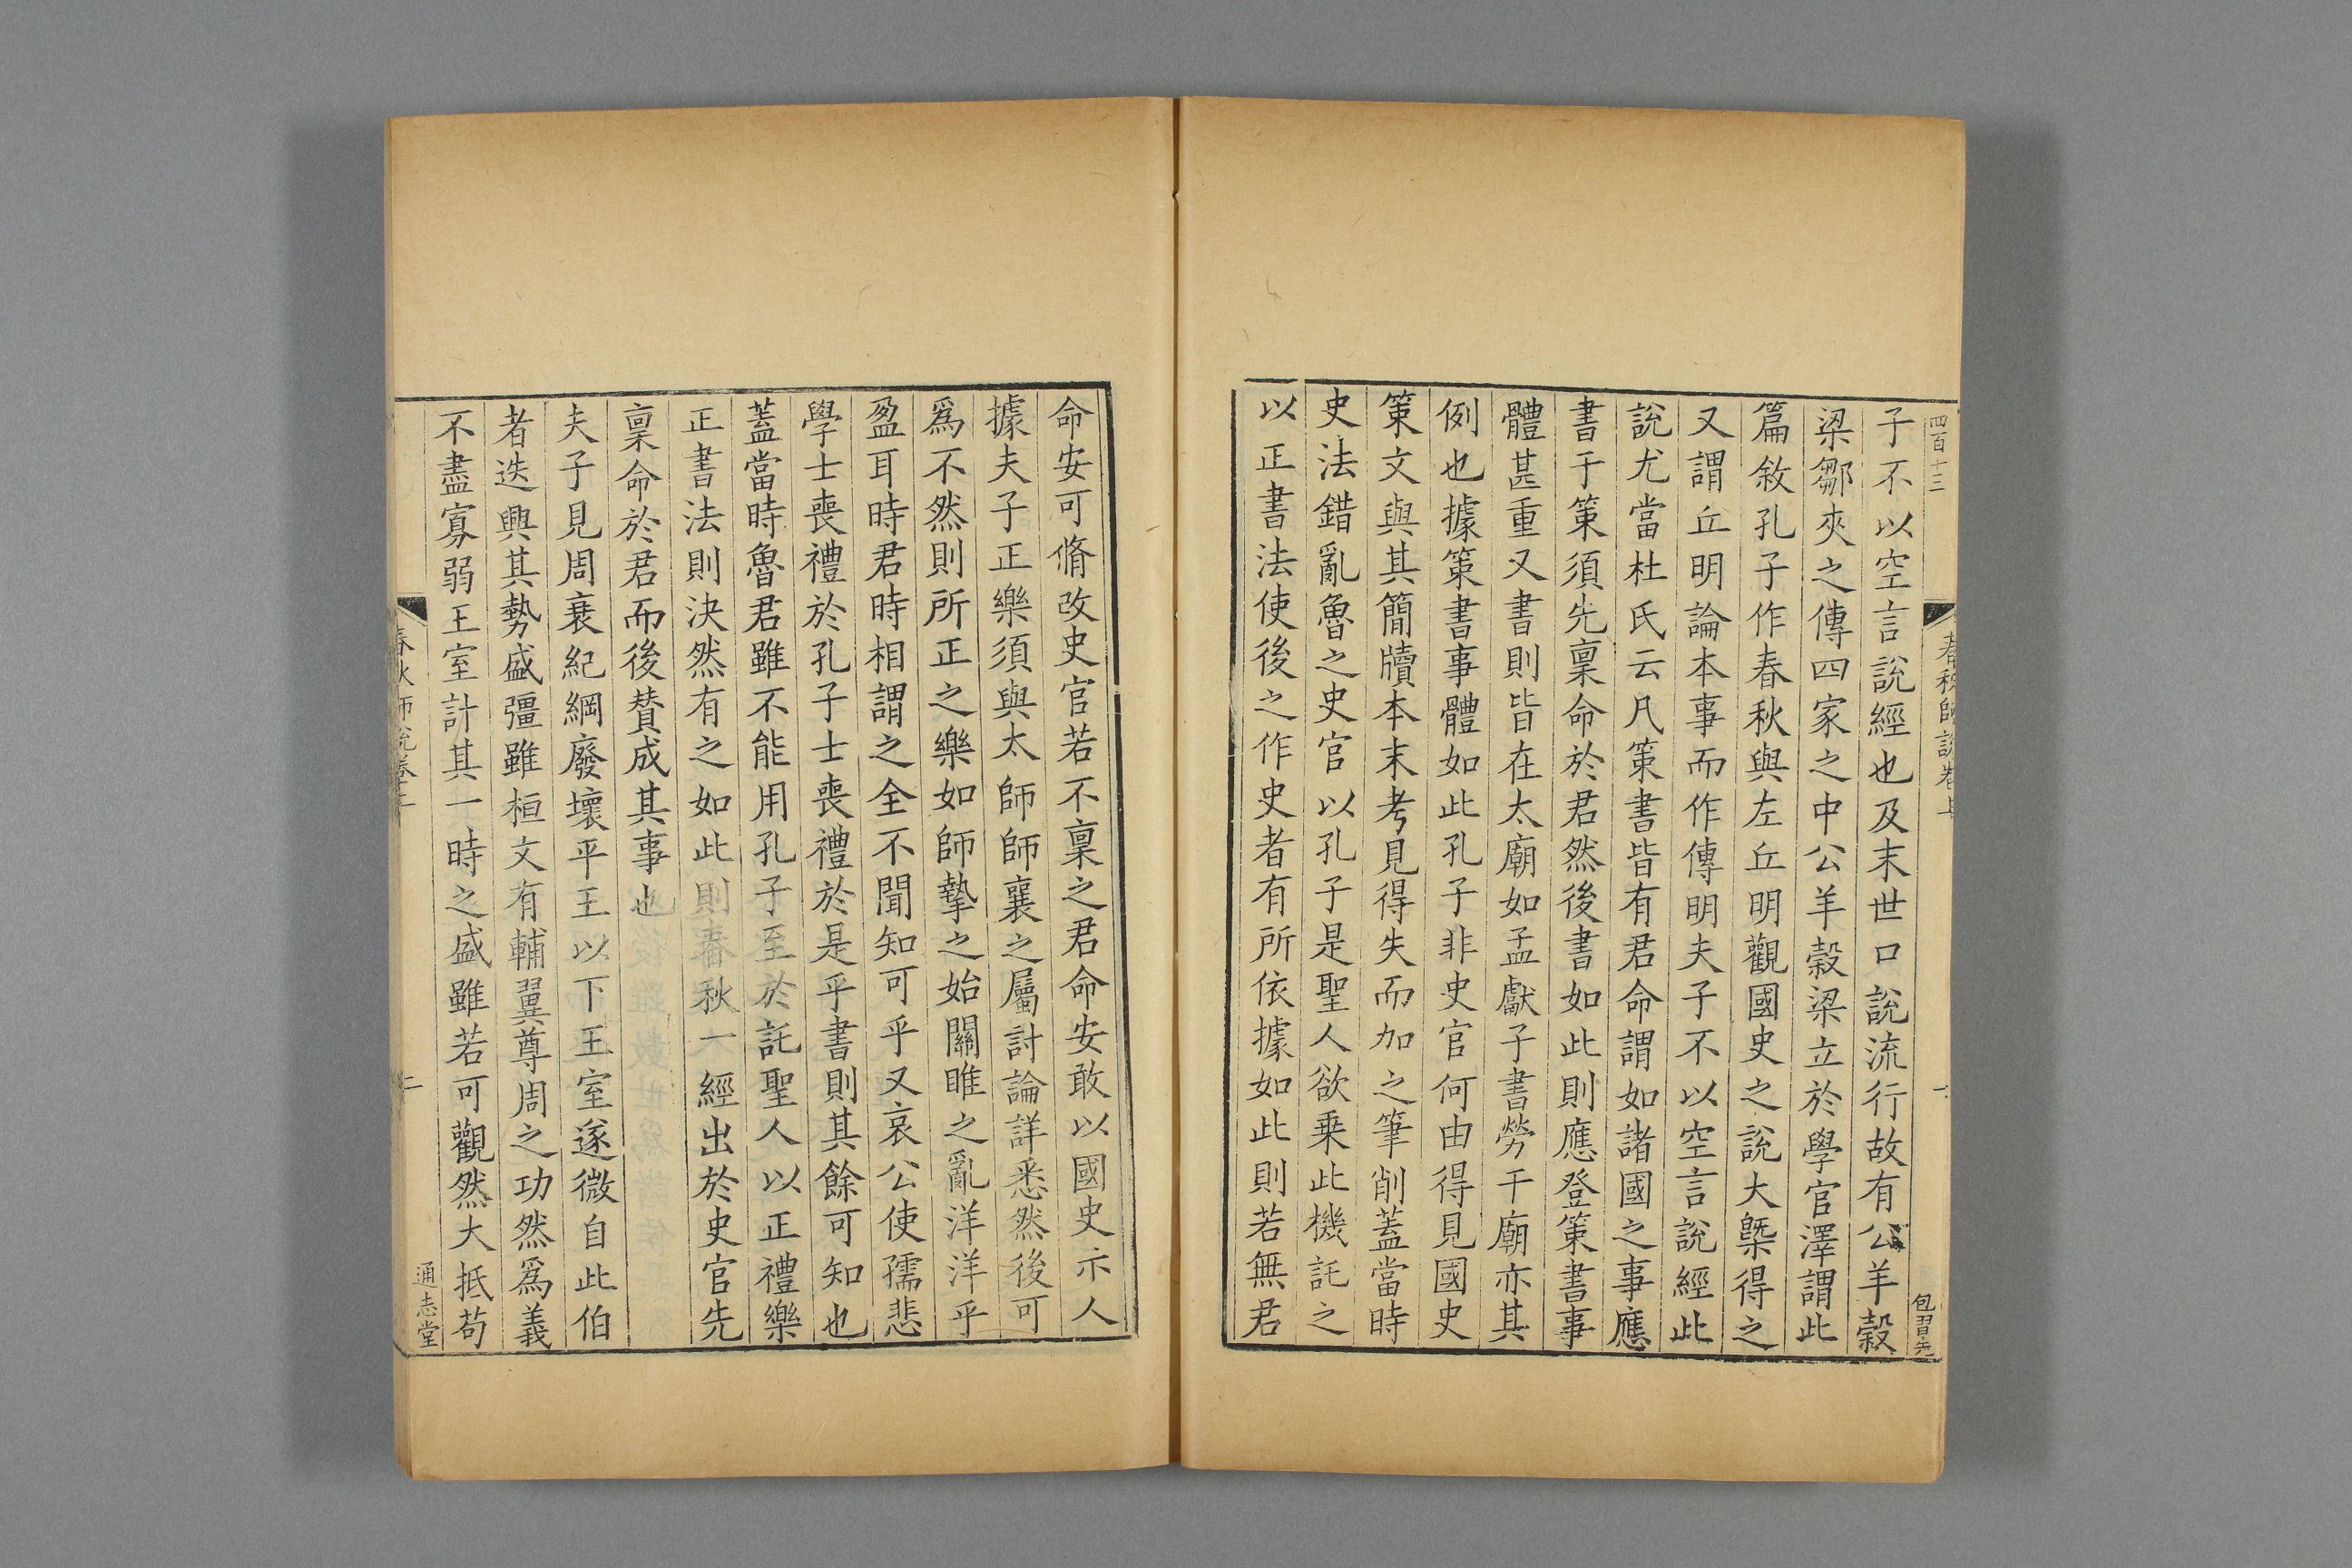 四百十三
春秋師說卷上
一
包習先
子不以空言說經也及末世口說流行故有公羊穀
梁鄒夾之傳四家之中公羊穀梁立於學官澤謂此
篇敘孔子作春秋與左丘明觀國史之說大槩得之
又謂丘明論本事而作傳明夫子不以空言說經此
說尤當杜氏云凡策書皆有君命謂如諸國之事應
書于策須先稟命於君然後書如此則應登策書事
體甚重又書則皆在太廟如孟獻子書勞于廟亦其
例也據策書事體如此孔子非史官何由得見國史
策文與其簡牘本末考見得失而加之筆削蓋當時
史法錯亂魯之史官以孔子是聖人欲乗此機託之
以正書法使後之作史者有所依據如此則若無君
命安可脩改史官若不稟之君命安敢以國史示人
據夫子正樂須與太師師襄之屬討論詳悉然後可
爲不然則所正之樂如師摯之始關雎之亂洋洋乎
盈耳時君時相謂之全不聞知可乎又哀公使孺悲
學士喪禮於孔子士喪禮於是乎書則其餘可知也
蓋當時魯君雖不能用孔子至於託聖人以正禮樂
正書法則決然有之如此則春秋一經出於史官先
稟命於君而後賛成其事也
夫子見周衰紀綱廢壞平王以下王室遂微自此伯
者迭興其勢盛彊雖桓文有輔翼尊周之功然爲義
不盡寡弱王室計其一時之盛雖若可觀然大抵苟
春秋師說卷上
二
通志堂